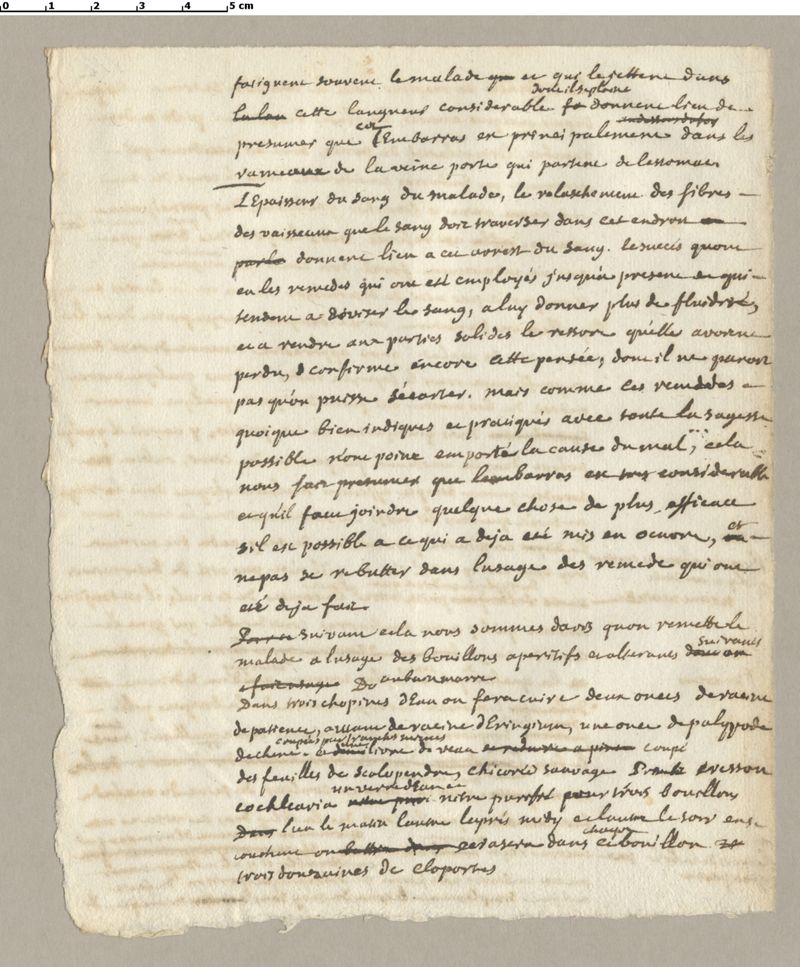 0 1 2 3 4 5 cm
fatiguent souvent le malade et qui le jettent dans
dont il se plaint
cette langueur considerable donnent lieu de
presumer que cet Embarras est principalement dans les
rameaux de la veine porte qui partent de lestomac
LEpaisseur du sang du malade, le relaschement des fibres
des vaisseaux que le sang doit traverser dans cet endroit
donnent lieu a cet arrest du sang. le succès quont
eu les remedes qui ont esté employés jusqu'à present et qui
tendent a diviser le sang, a luy donner plus de fluidité,
et a rendre aux parties solides le ressort qu'elle avoient
perdu, confirme encore cette pensée, dont il ne paroit
pas qu'on puisse s'écarter. mais comme ces remedes
quoique bien indiqués et pratiqués avec toute la sagesse
possible n'ont point emporté la cause du mal, cela
nous fait presumer que lembarras est tres considerable
et qu'il faut joindre quelque chose de plus efficace
s'il est possible a ce qui a deja eté mis en oeuvre, et
ne pas se rebutter dans lusage des remede qui ont
eté deja fait.
suivant cela nous sommes davis quon remette le
malade a lusage des bouillons aperitifs et alterants suivants
au bain marie
Dans trois chopines d'Eau on fera cuire deux onces de racine
de patience, autant de racine d'Eringium, une once de polypode
coupées par tranches minces
de chene. a une livre de veau coupé
des feuilles de scolopendre, chicorée sauvage cresson
cochlearia nitre purifié pour trois bouillons
lun le matin lautre l'après midy et lautre le soir en se
couchant on ecrasera dans chaque bouillon
trois douzaines de cloportes